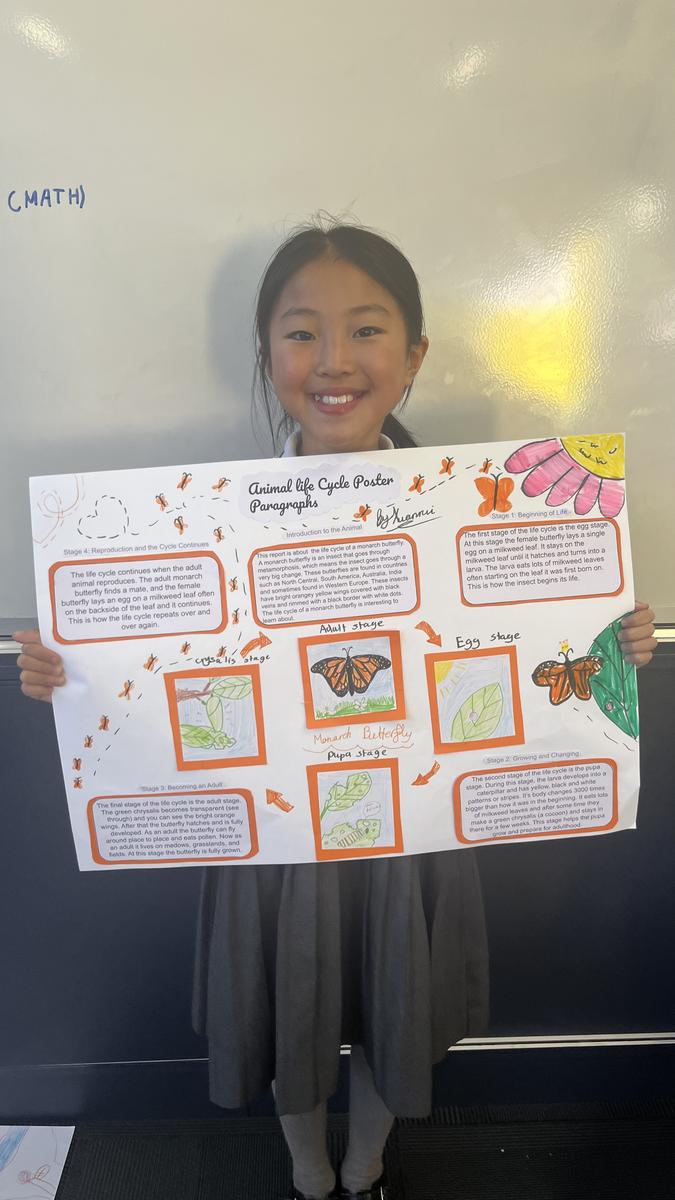 (MATH)
Animal life Cycle Poster
Paragraphs
by Xuanrui
Stage 4: Reproduction and the Cycle Continues
The life cycle continues when the adult
animal reproduces. The adult monarch
butterfly finds a mate, and the female
butterfly lays an egg on a milkweed leaf often
on the backside of the leaf and it continues.
This is how the life cycle repeats over and
over again.
Introduction to the Animal
This report is about the life cycle of a monarch butterfly.
A monarch butterfly is an insect that goes through
metamorphosis, which means the insect goes through a
very big change. These butterflies are found in countries
such as North Central, South America, Australia, India
and sometimes found in Western Europe. These insects
have bright orangey yellow wings covered with black
veins and rimmed with a black border with white dots.
The life cycle of a monarch butterfly is interesting to
learn about.
Stage 1: Beginning of Life
The first stage of the life cycle is the egg stage.
At this stage the female butterfly lays a single
egg on a milkweed leaf. It stays on the
milkweed leaf until it hatches and turns into a
larva. The larva eats lots of milkweed leaves
often starting on the leaf it was first born on.
This is how the insect begins its life.
Crysalis stage
Adult stage
Egg stage
Monarch Butterfly
Pupa stage
Stage 3: Becoming an Adult
The final stage of the life cycle is the adult stage.
The green chrysalis becomes transparent (see
through) and you can see the bright orange
wings. After that the butterfly hatches and is fully
developed. As an adult the butterfly can fly
around place to place and eats pollen. Now as
an adult it lives on medows, grasslands, and
fields. At this stage the butterfly is fully grown.
Stage 2: Growing and Changing
The second stage of the life cycle is the pupa
stage. During this stage, the larva develops into a
caterpillar and has yellow, black and white
patterns or stripes. It's body changes 3000 times
bigger than how it was in the beginning. It eats lots
of milkweed leaves and after some time they
make a green chrysalis (a cocoon) and stays in
there for a few weeks. This stage helps the pupa
grow and prepare for adulthood.